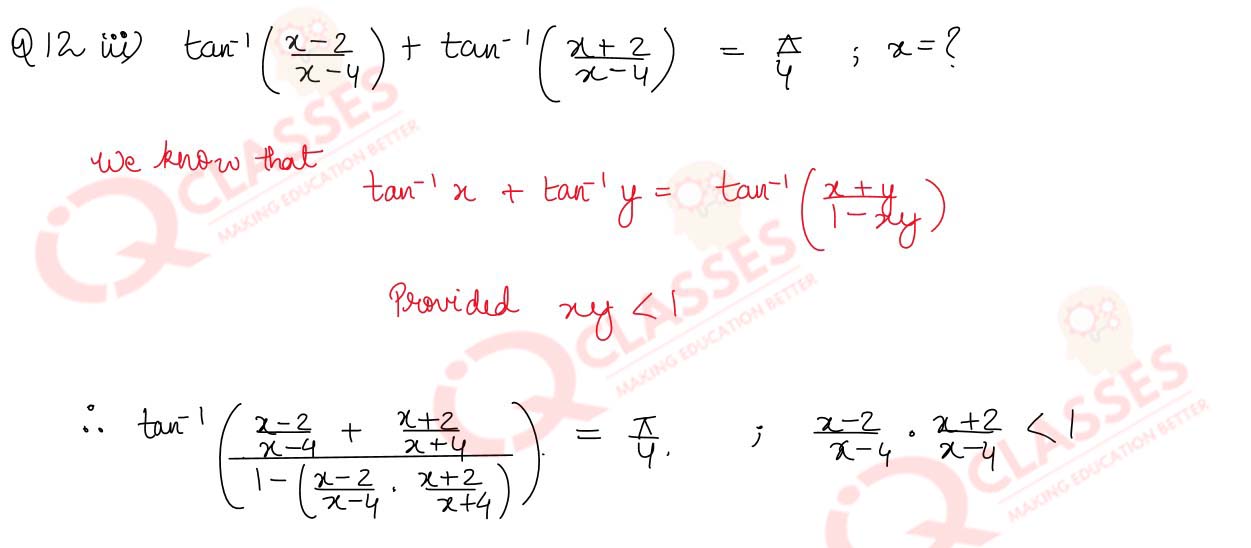 Q12 iii) tan⁻¹((x-2)/(x-4)) + tan⁻¹((x+2)/(x-4)) = π/4 ; x=?
We know that
tan⁻¹ x + tan⁻¹ y = tan⁻¹((x+y)/(1-xy))
Provided xy < 1
∴ tan⁻¹(((x-2)/(x-4) + (x+2)/(x+4))/(1-((x-2)/(x-4) · (x+2)/(x+4)))) = π/4. ; (x-2)/(x-4) · (x+2)/(x-4) < 1
IQ CLASSES
MAKING EDUCATION BETTER
IQ CLASSES
MAKING EDUCATION BETTER
IQ CLASSES
MAKING EDUCATION BETTER